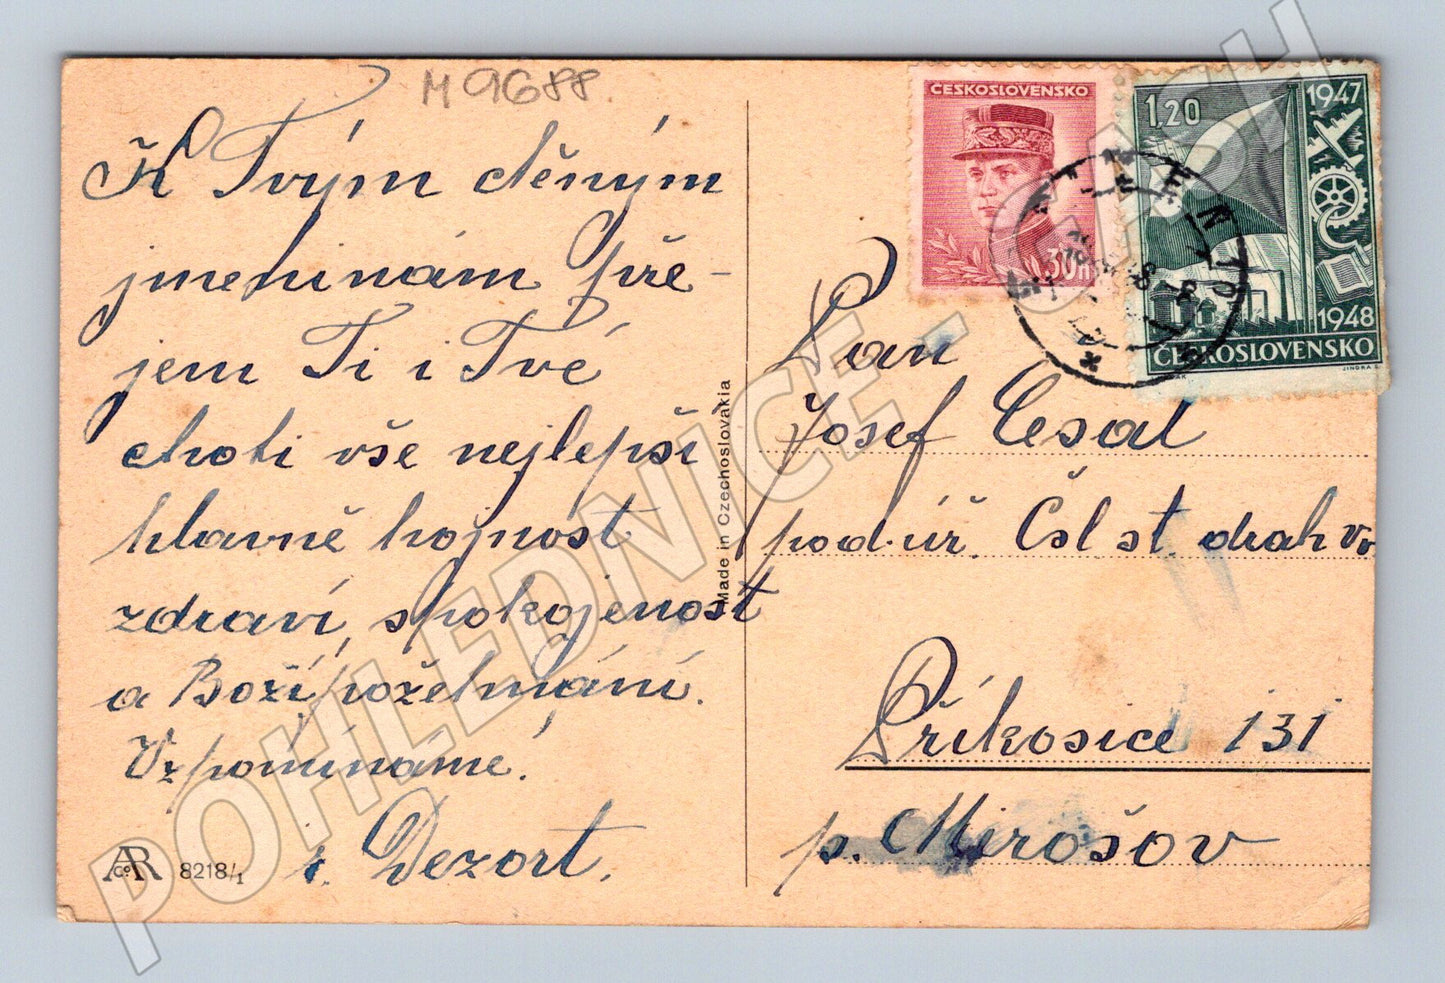 M 9688
K Tvým cteným
jmeninám pře-
jem Ti i Tvé
choti vše nejlepší
hlavně hojnost
zdraví, spokojenost
a Boží požehnání.
Vzpomínáme!
Dezort.
AR
Co
8218/1
Made in Czechoslovakia
ČESKOSLOVENSKO
30H
1.20
1947
1948
ČESKOSLOVENSKO
JINDRA S.
Pan
Josef Cesal
pod.úř. Čsl st. drah v.v.
Příkosice 131
p. Mirošov
POHLEDNICE - GASH